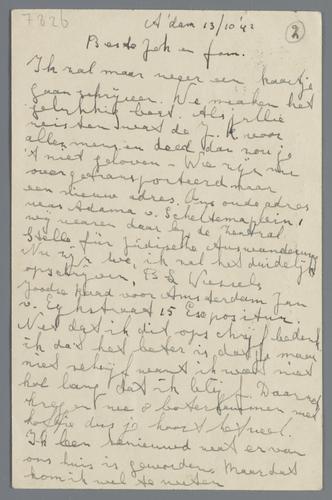 7826
A'dam 13/10 '42
2
Beste Jek en fam.
Ik zal maar weer een kaartje
gaan schrijven. We maken het
gelukkig best. Als jullie
wisten wat de J. R. voor
alle mensen deed dan zou je
't niet geloven - We zijn nu
overgetransporteerd naar
een nieuw adres. Ons oude adres
was Adama v. Scheltemaplein 1
wij waren daar bij de Zentral
Stelle für jüdische Auswanderung
Nu zijn we, ik zal het duidelijk
opschrijven, B S Wessels
Joodse Raad voor Amsterdam Jan
v. Eijkstraat 15 Expositur.
Net dat ik dit opschrijf bedenk
ik dat het beter is dat je maar
niet schrijft want ik weet niet
hoe lang dat ik blijf. Daarnet
kreeg en we 8 boterhammen met
koffie dus je hoort het wel.
Ik ben benieuwd wat er van
ons huis is geworden. Maar dat
kom ik wel te weten